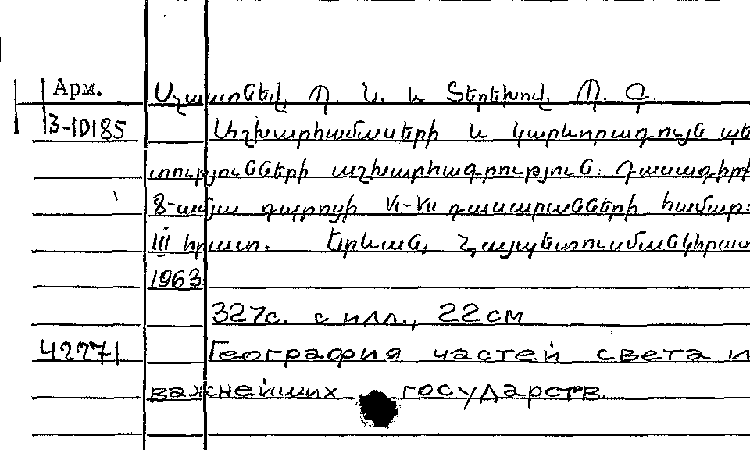 Арм. Աշատոնել, Պ. Ն. և Տերեխով, Պ. Գ.
3-10185 Աշխարհամասերի և կարևորագույն պե
տությունների աշխարհագրություն: Դասագիրք
8-ամյա դպրոցի VI-VII դասարանների համար:
III հրատ. Երևան, Հայպետուսմանկհրատ
1963
327с. с илл., 22 см
42271 География частей света и
важнейших государств.